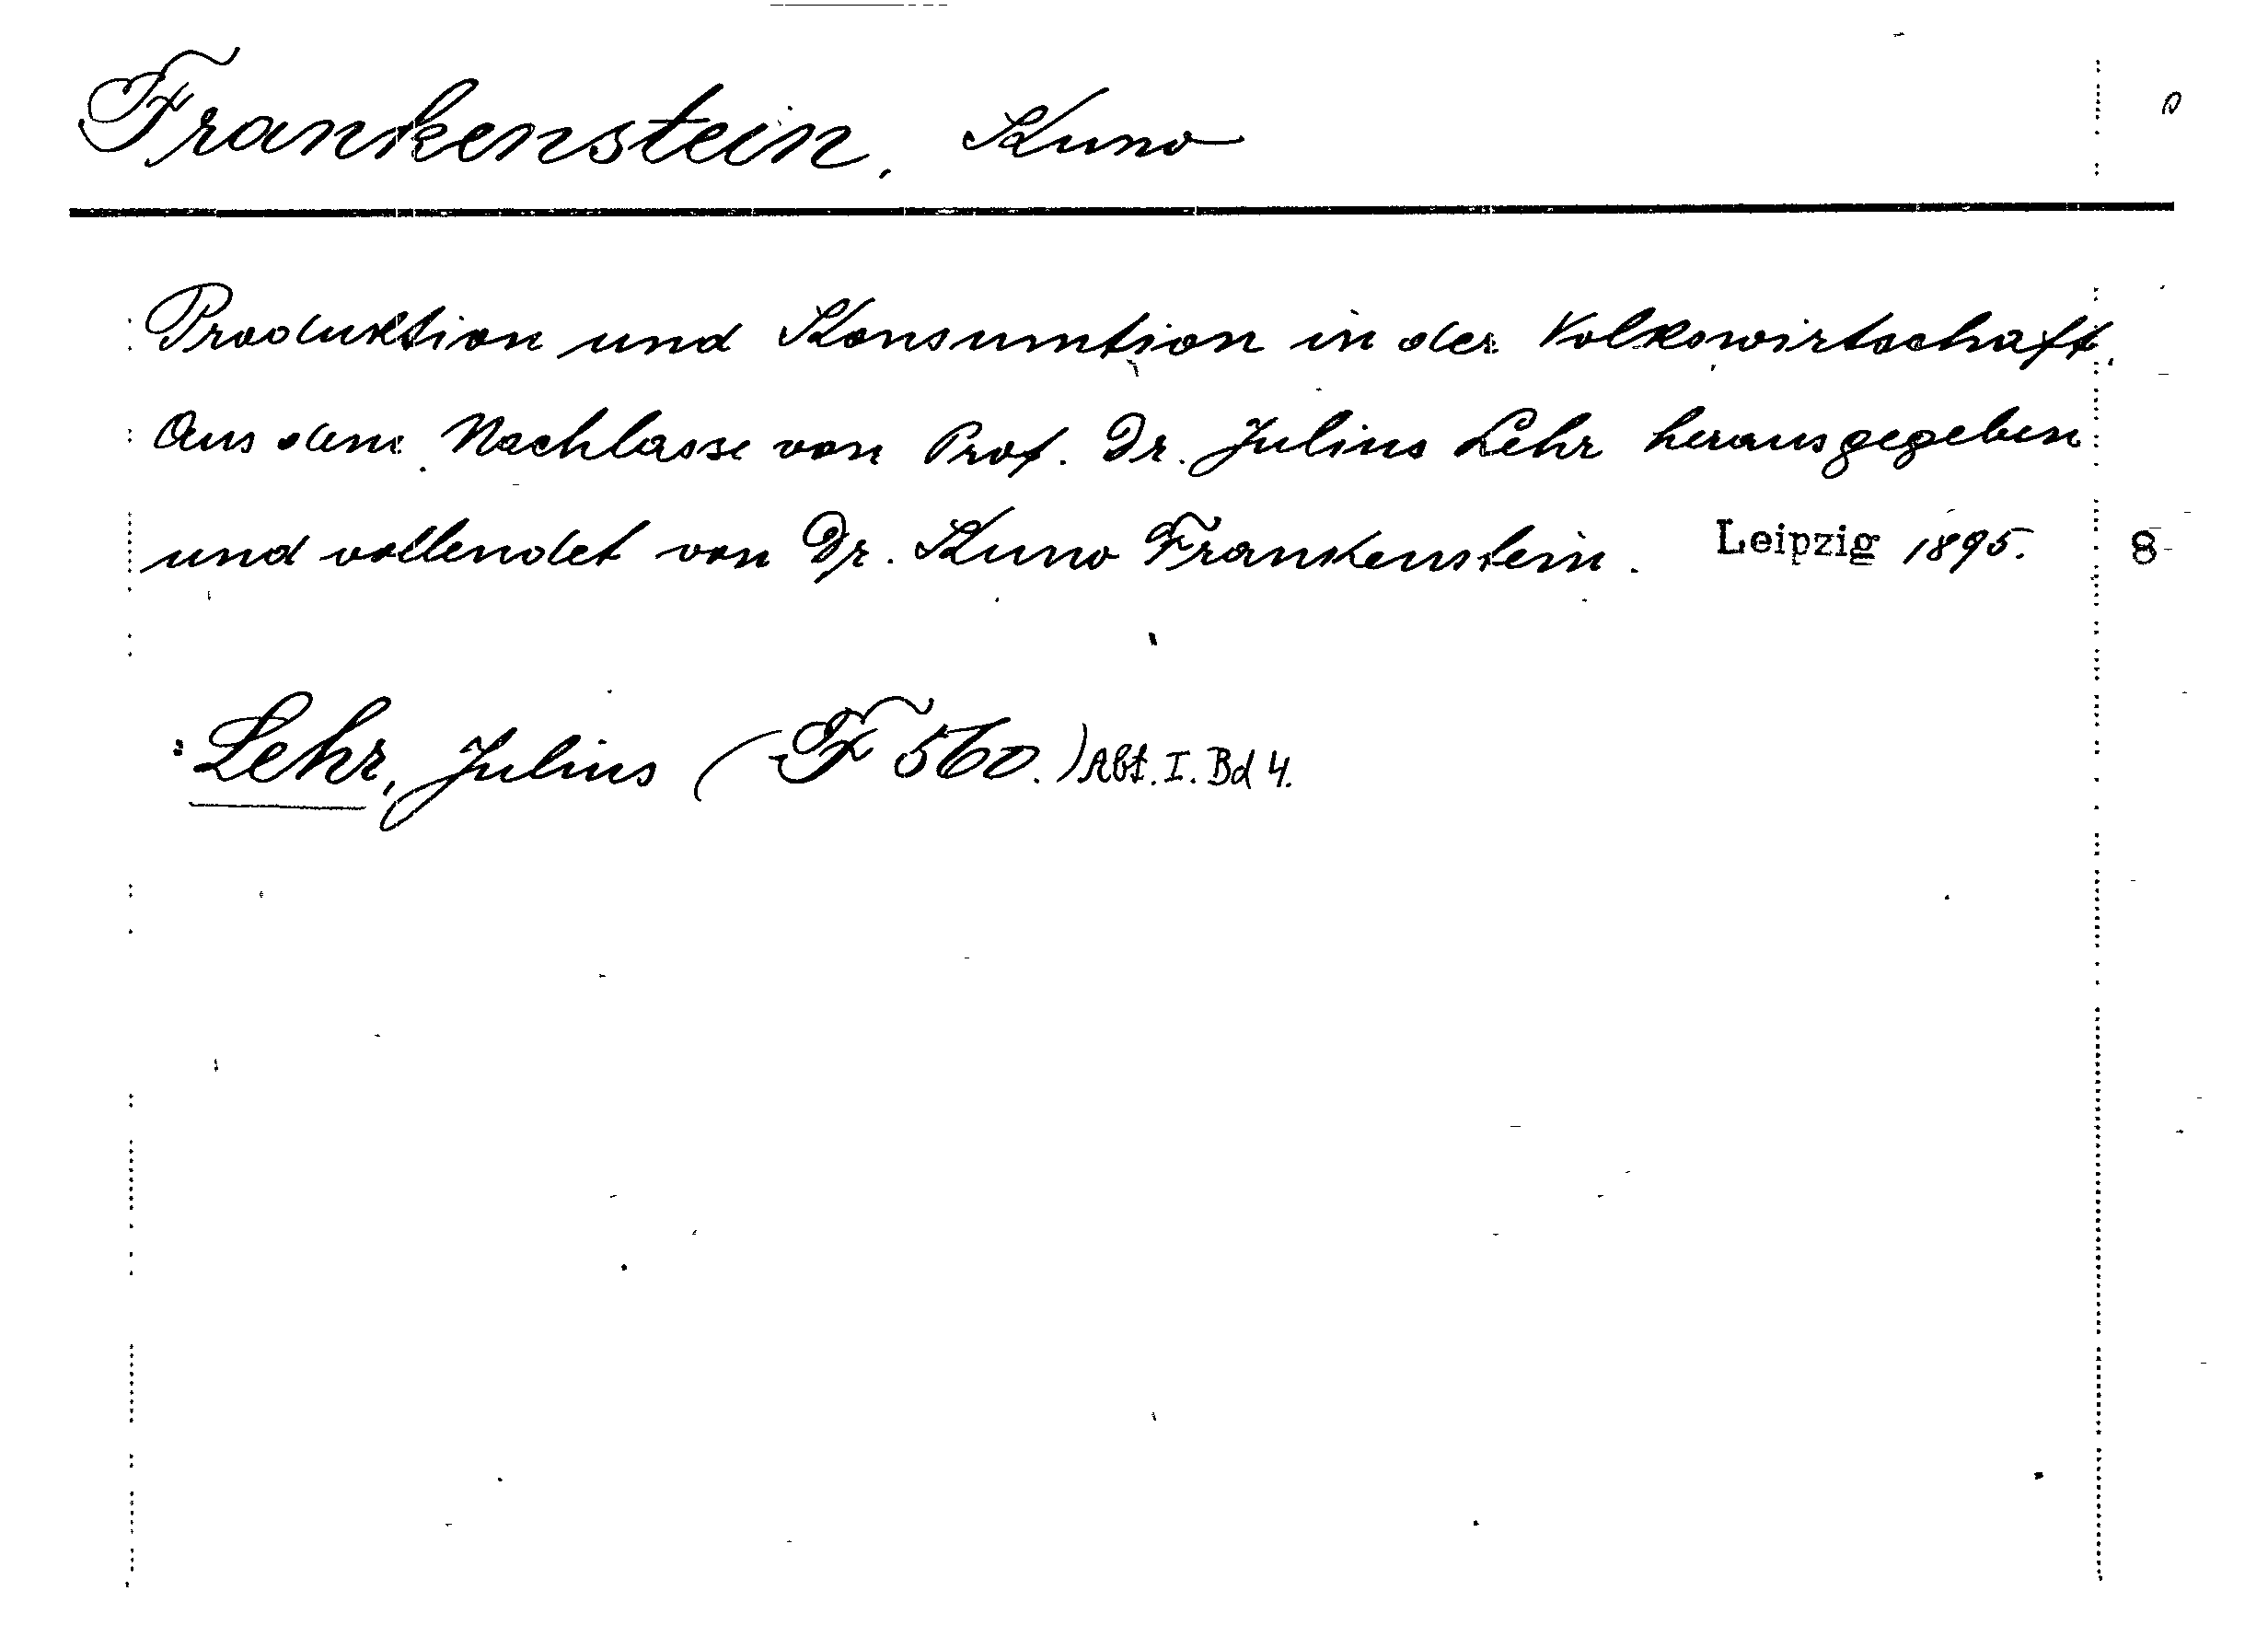 Frankenstein, Kuno
Produktion und Konsumtion in der Volkswirtschaft.
Aus dem Nachlasse von Prof. Dr. Julius Lehr herausgegeben
und vollendet von Dr. Kuno Frankenstein. Leipzig 1895. 8
Lehr, Julius (F 560.) Abt. I. Bd 4.